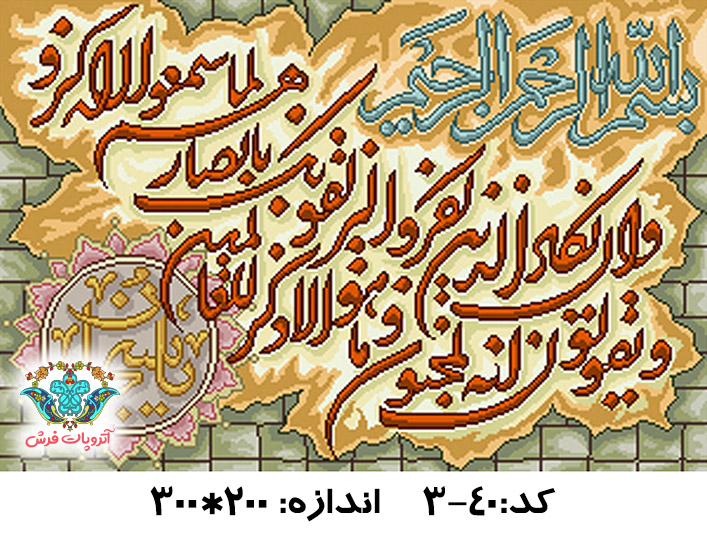 بسم الله الرحمن الرحیم
وان یکاد الذین کفروا لیزلقونک بابصارهم
لما سمعوا الذکر و
یقولون انه لمجنون
و ما هو الا ذکر للعالمین
آتروپات فرش
کد:۴۰-۳ اندازه: ۲۰۰*۳۰۰